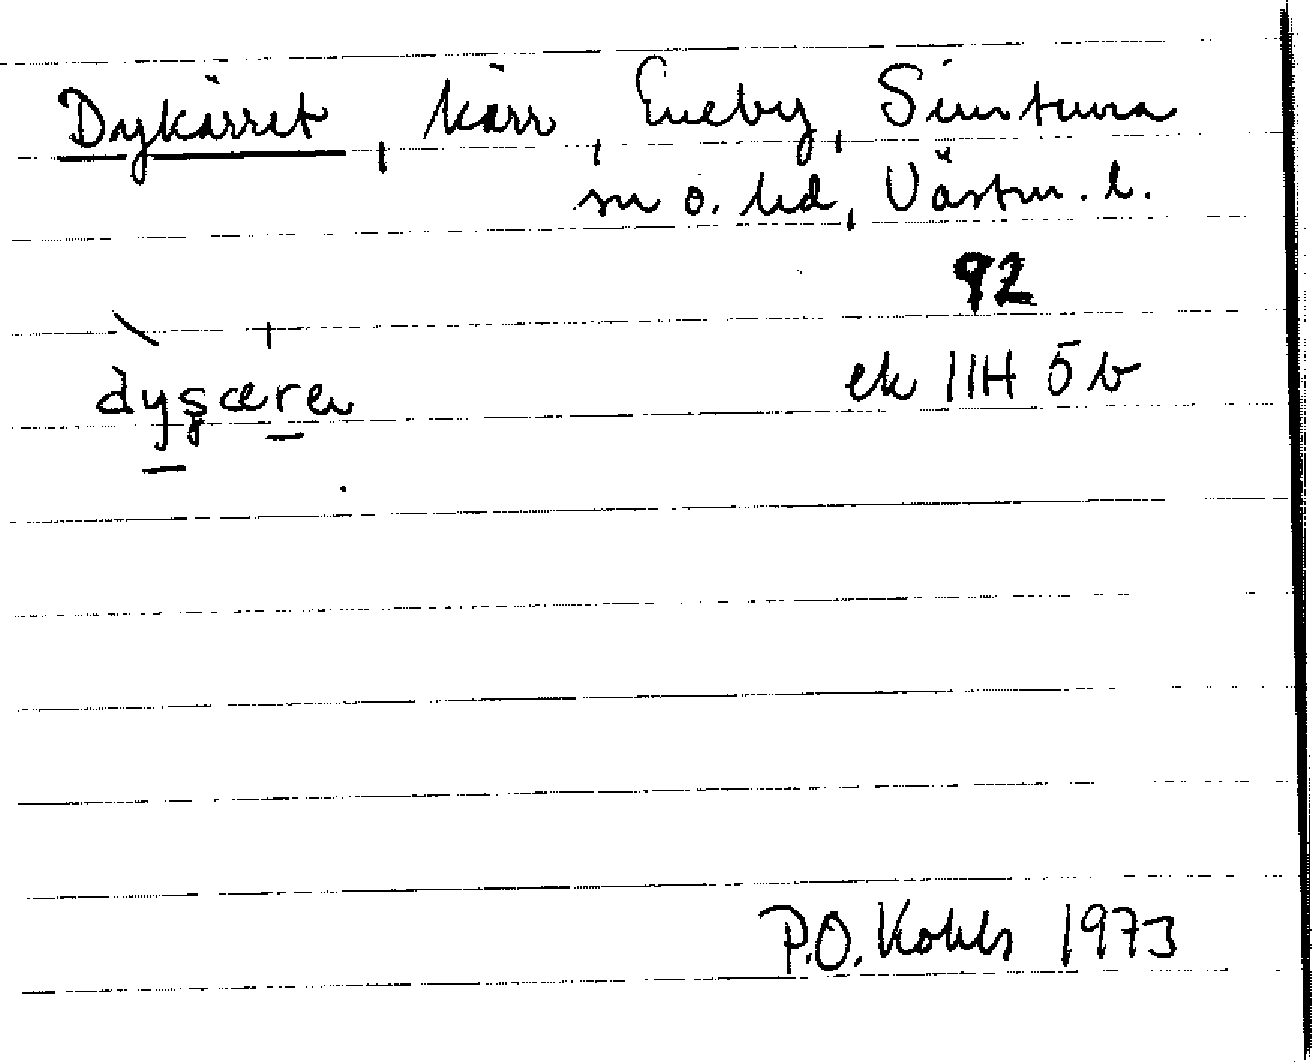 Dykärret, kärr, Eneby, Simtuna
sn o. hd, Västm. l.
92
dyʂæræ
ek 11H 5b
P.O. Kohls 1973